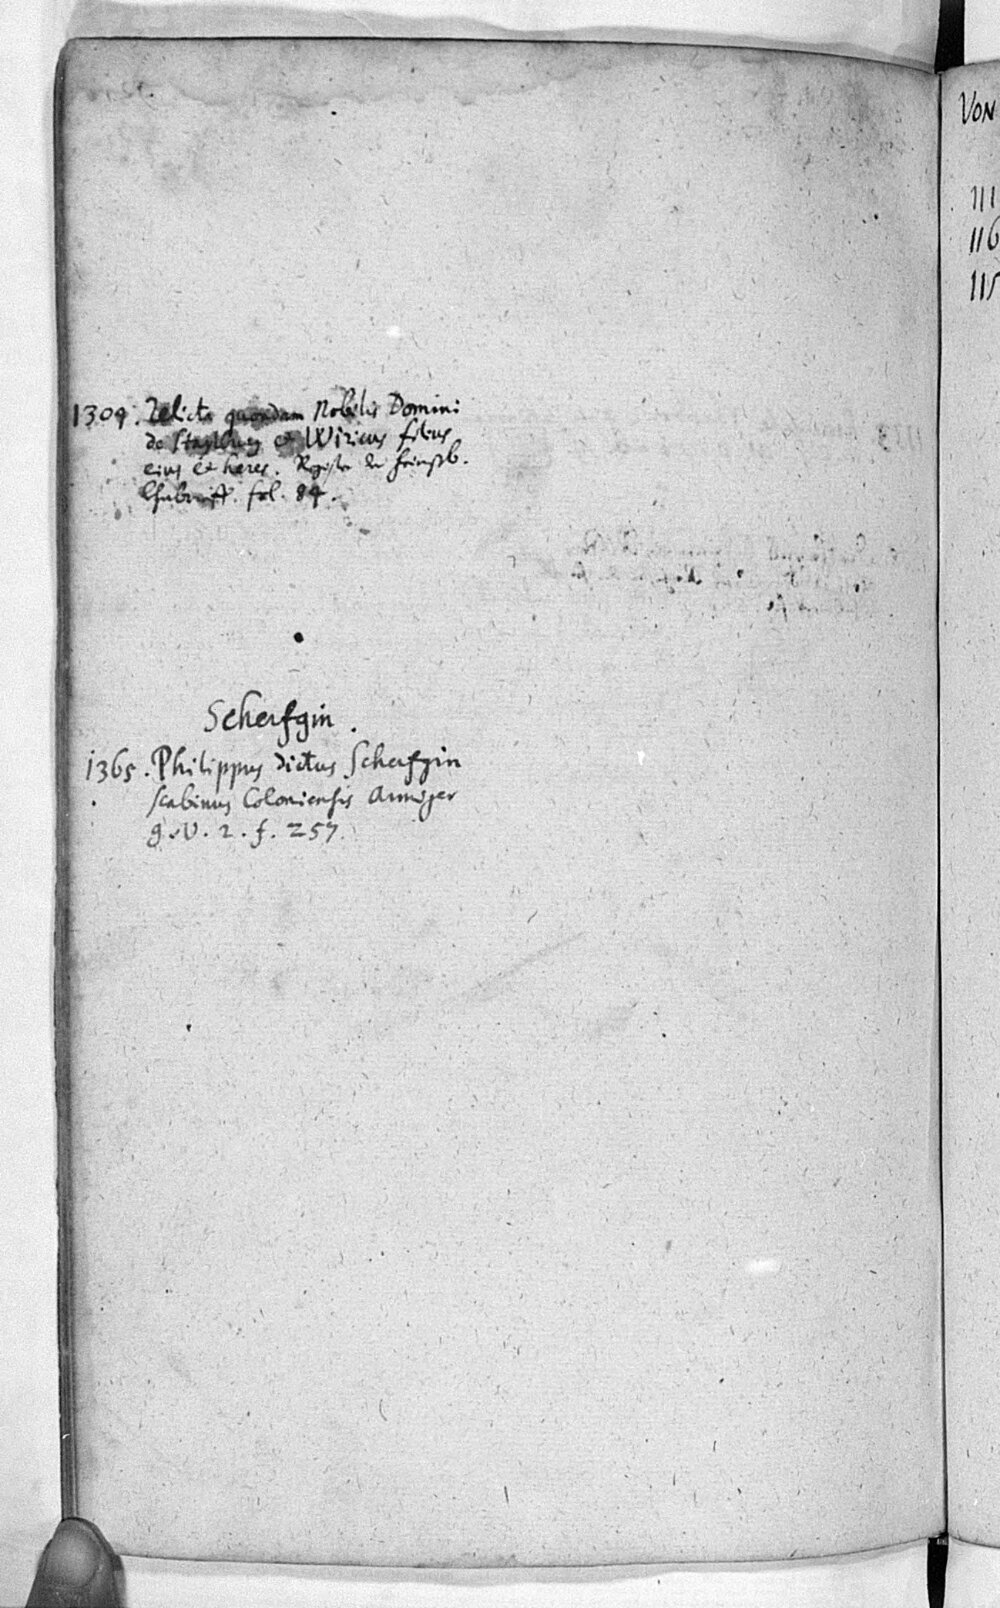 1309. Relicta quondam Nobilis Domini
de et Wiricus filius
eius et heres. Registr. de
fol. 84.
Scherfgin.
1365. Philippus dictus Scherfgin
scabinus Coloniensis Armiger
g. v. 2. f. 257.
VON
111
116
115